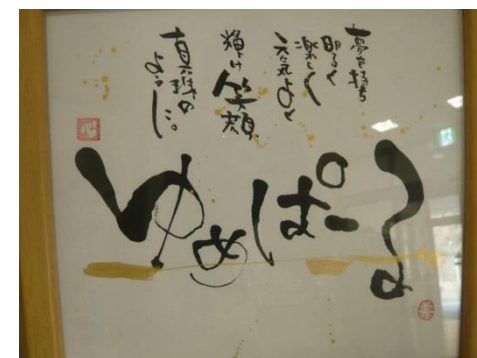 夢を持ち
明るく
楽しく
元気よく
輝け笑顔
真珠の
ように。
心
ゆめぱーる